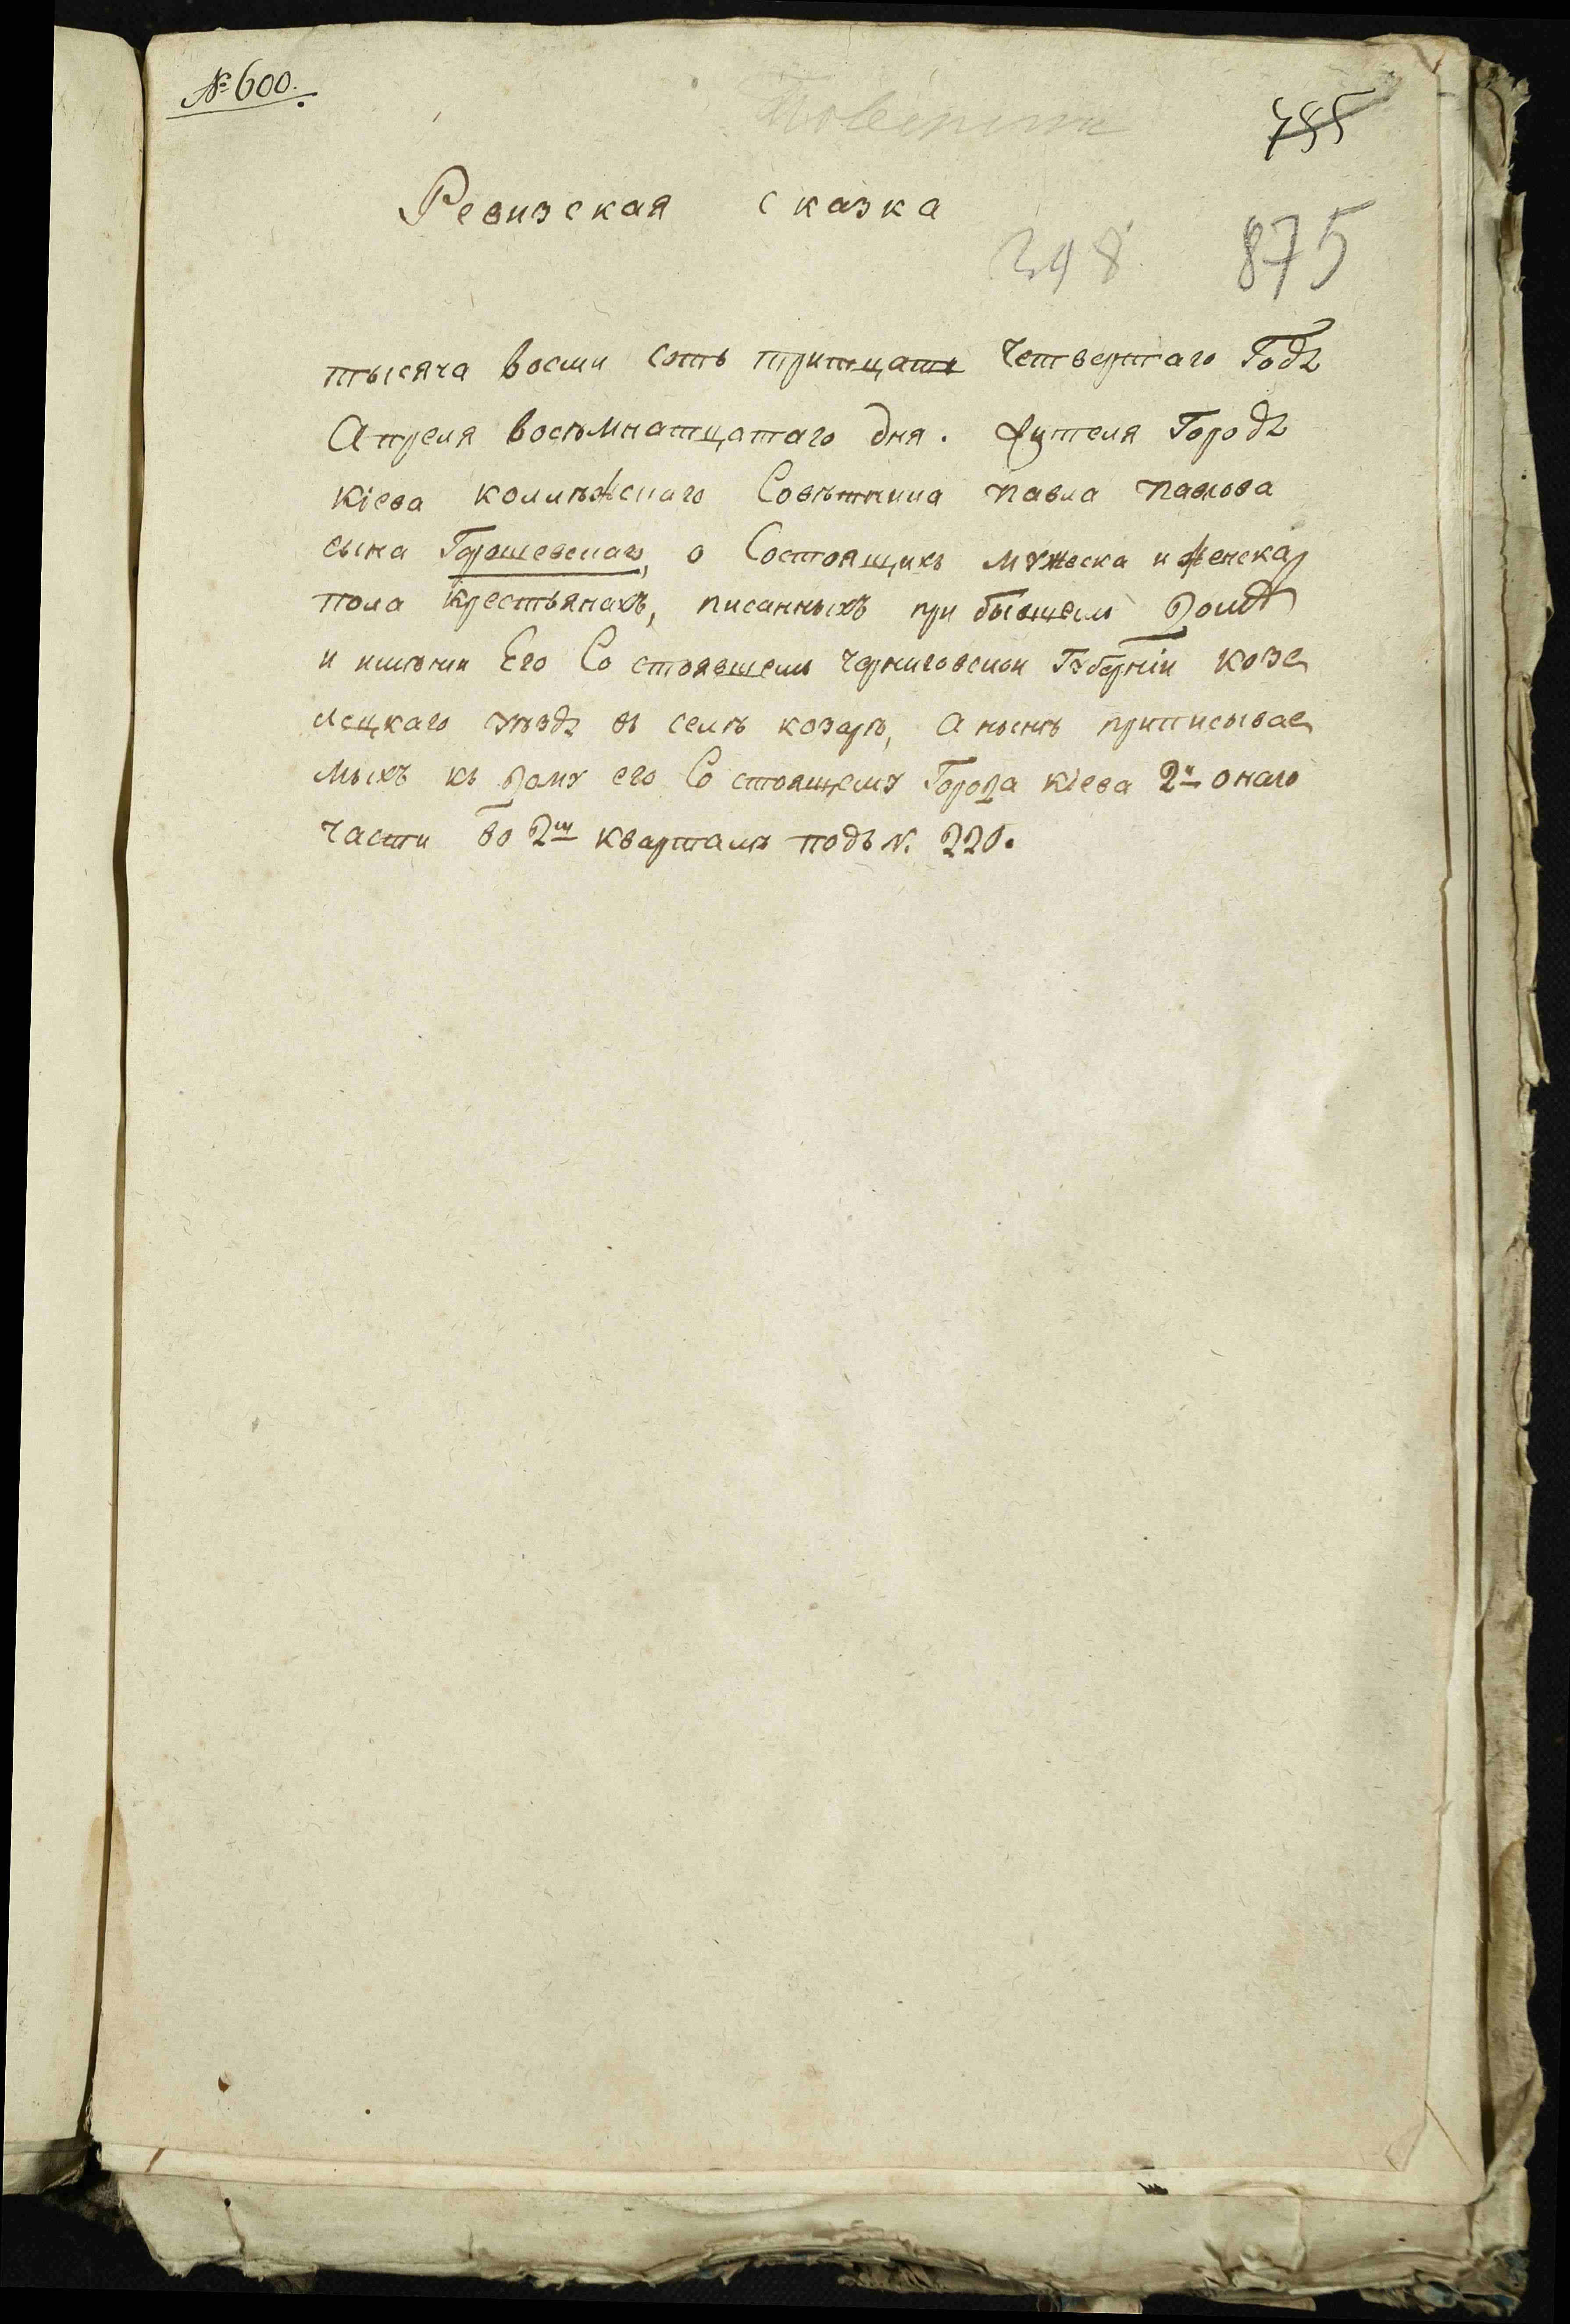 № 600.
755
Ревизская сказка
298 875
тысяча восми сотъ тритцать Четвертаго Года
Апреля восъмнатцатаго дня. Жителя Города
Кіева коллѣжскаго Совѣтника павла павлова
сына Горошевскаго, о Состоящихъ мужеска и женска
пола крестьянахъ, писанныхъ при бывшемъ Домѣ
и имѣнии Его Состоявшемъ черниговской Губерніи козе
лецкаго уѣзда въ селѣ козарѣ, а нынѣ приписывае
мыхъ къ дому его Состоящему Города кіева 2й онаго
части во 2мъ кварталѣ подъ N. 220.